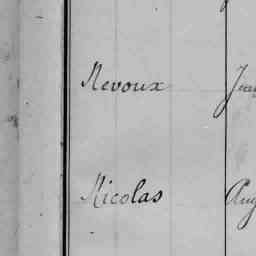 Nevoux
Nicolas Aug